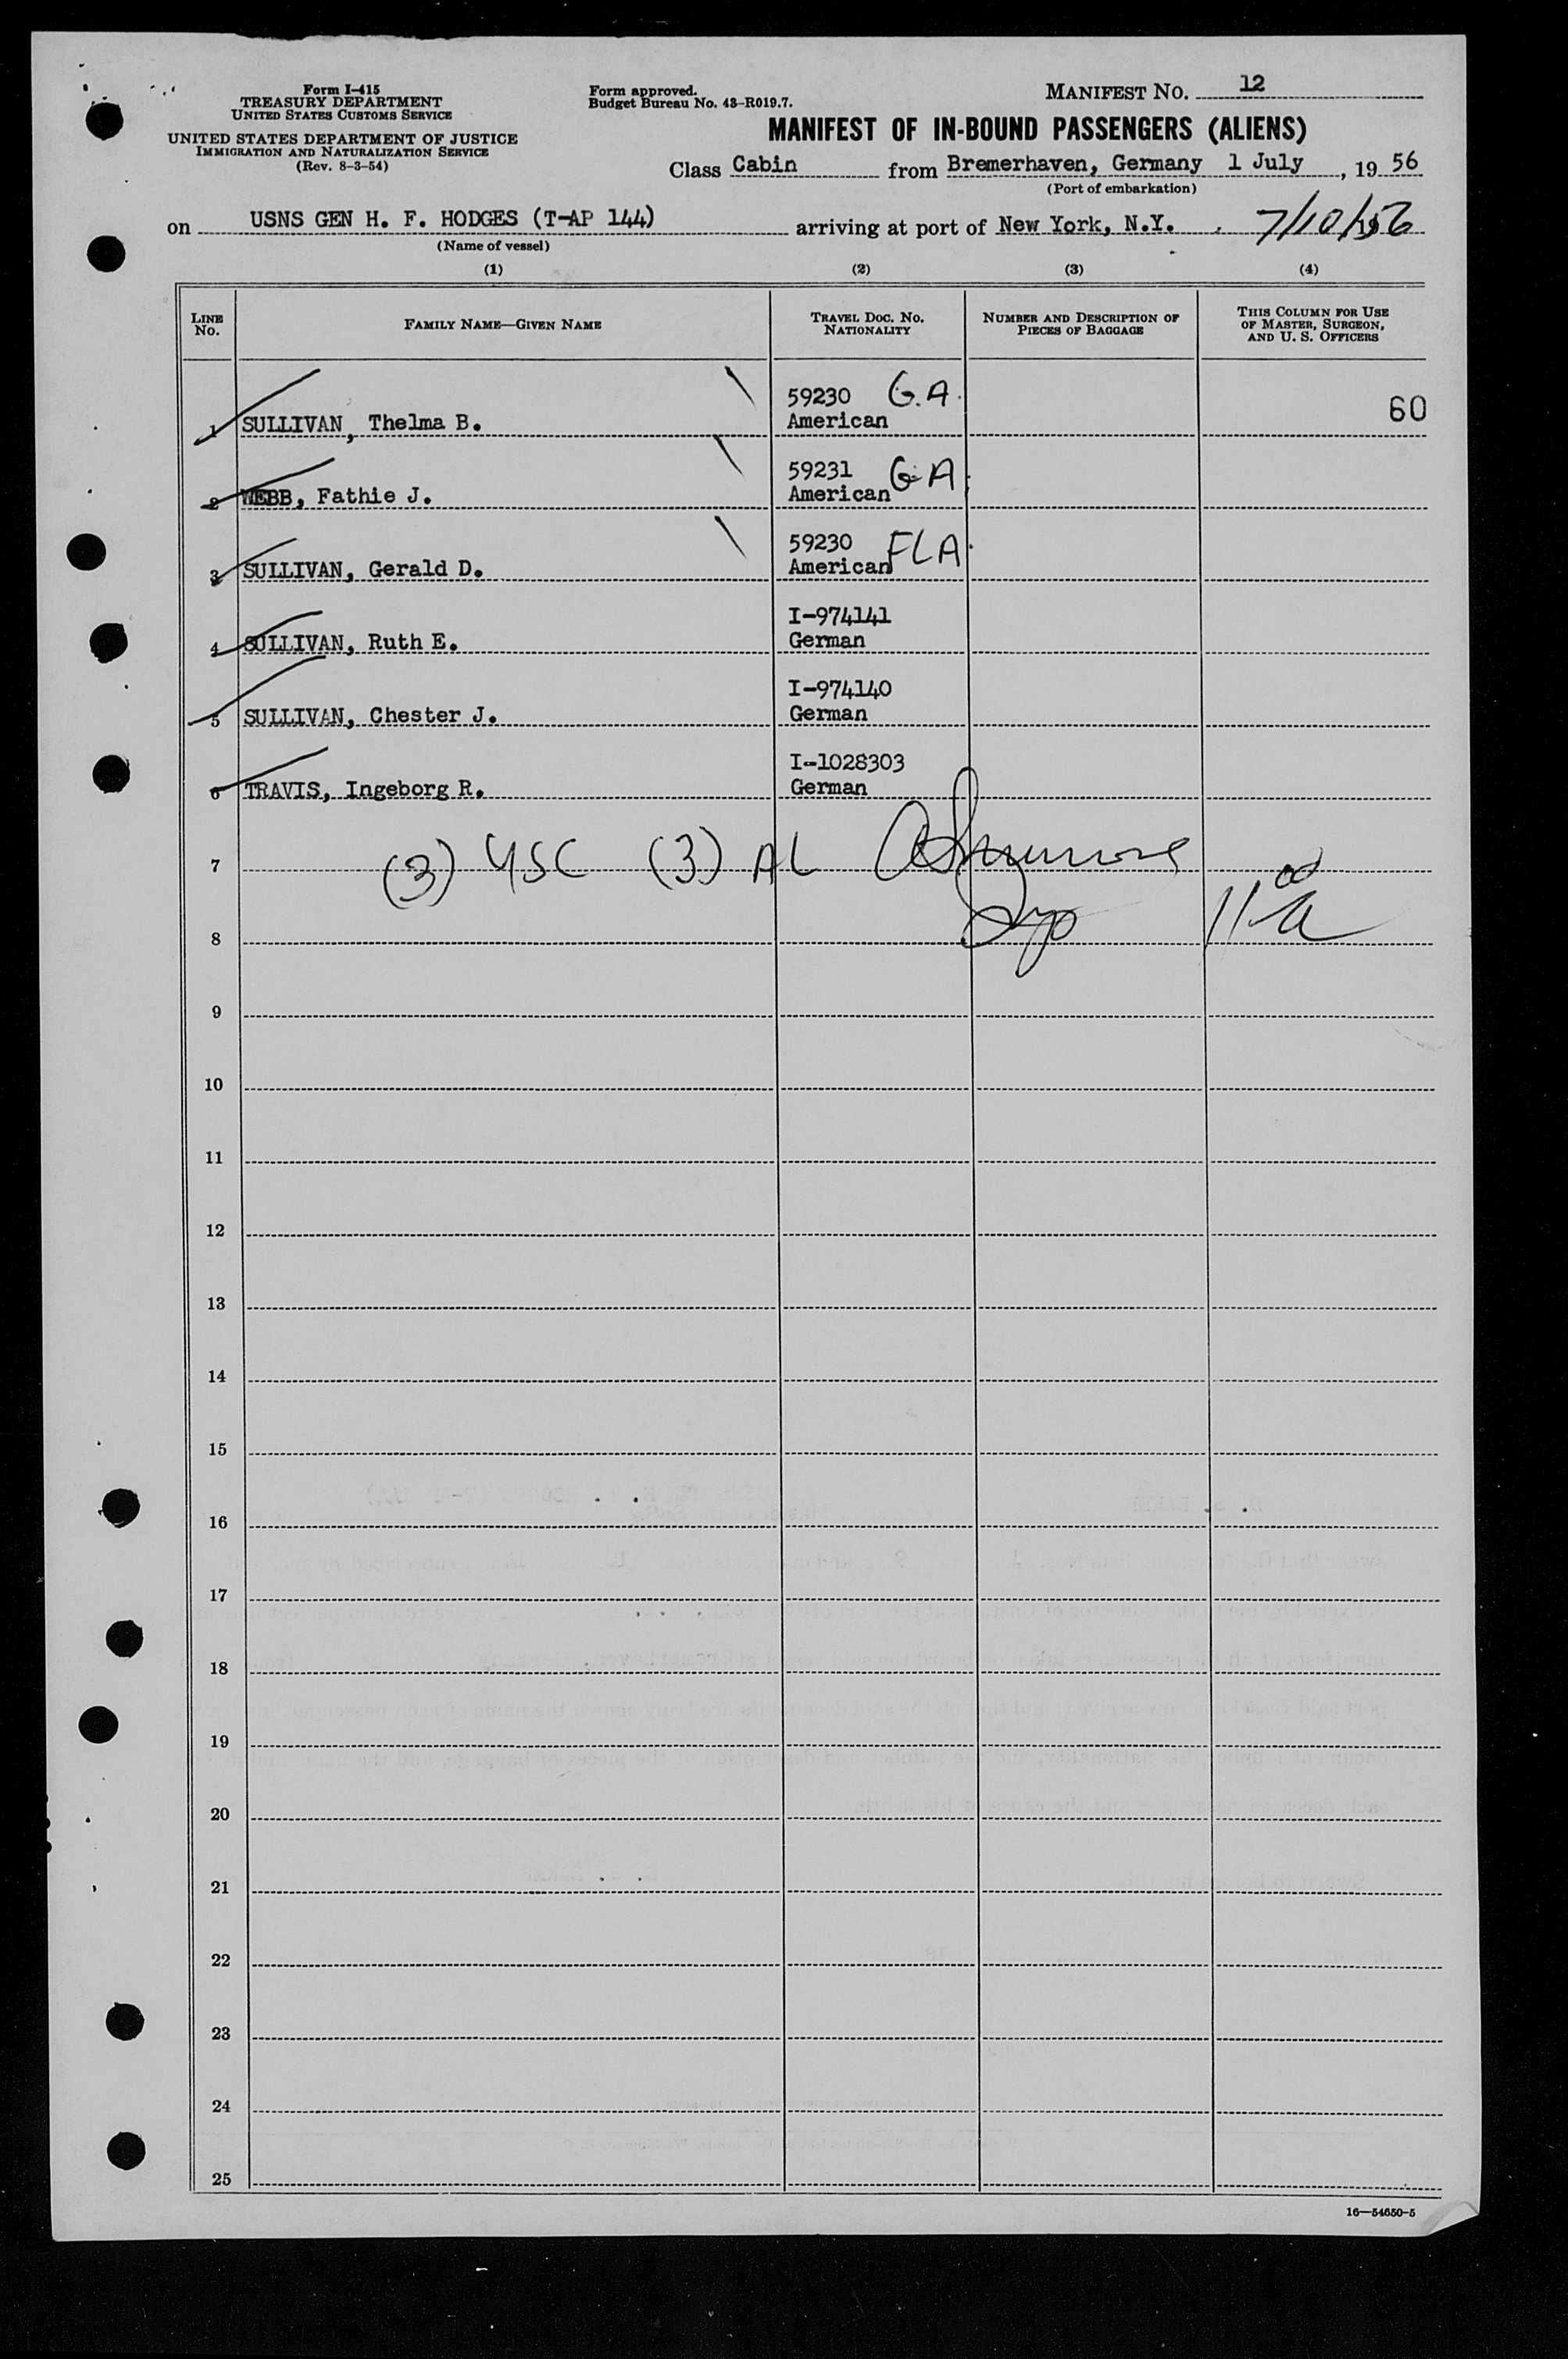 Form I-415
TREASURY DEPARTMENT
UNITED STATES CUSTOMS SERVICE
UNITED STATES DEPARTMENT OF JUSTICE
IMMIGRATION AND NATURALIZATION SERVICE
(Rev. 8-3-54)
Form approved.
Budget Bureau No. 43-R019.7.
MANIFEST NO. 12
MANIFEST OF IN-BOUND PASSENGERS (ALIENS)
Class Cabin from Bremerhaven, Germany 1 July, 19 56
(Port of embarkation)
on USNS GEN H. F. HODGES (T-AP 144) arriving at port of New York, N.Y. 7/10/56
(Name of vessel)
(1) (2) (3) (4)
LINE No. FAMILY NAME—GIVEN NAME TRAVEL DOC. NO. NATIONALITY NUMBER AND DESCRIPTION OF PIECES OF BAGGAGE THIS COLUMN FOR USE OF MASTER, SURGEON, AND U. S. OFFICERS
59230 G.A.
1 SULLIVAN, Thelma B. American 60
59231 GA
2 WEBB, Fathie J. American
59230 FLA
3 SULLIVAN, Gerald D. American
I-974141
4 SULLIVAN, Ruth E. German
I-974140
5 SULLIVAN, Chester J. German
I-1028303
6 TRAVIS, Ingeborg R. German
7 (3) USC (3) AL
8
9
10
11
12
13
14
15
16
17
18
19
20
21
22
23
24
25
16—54650-5